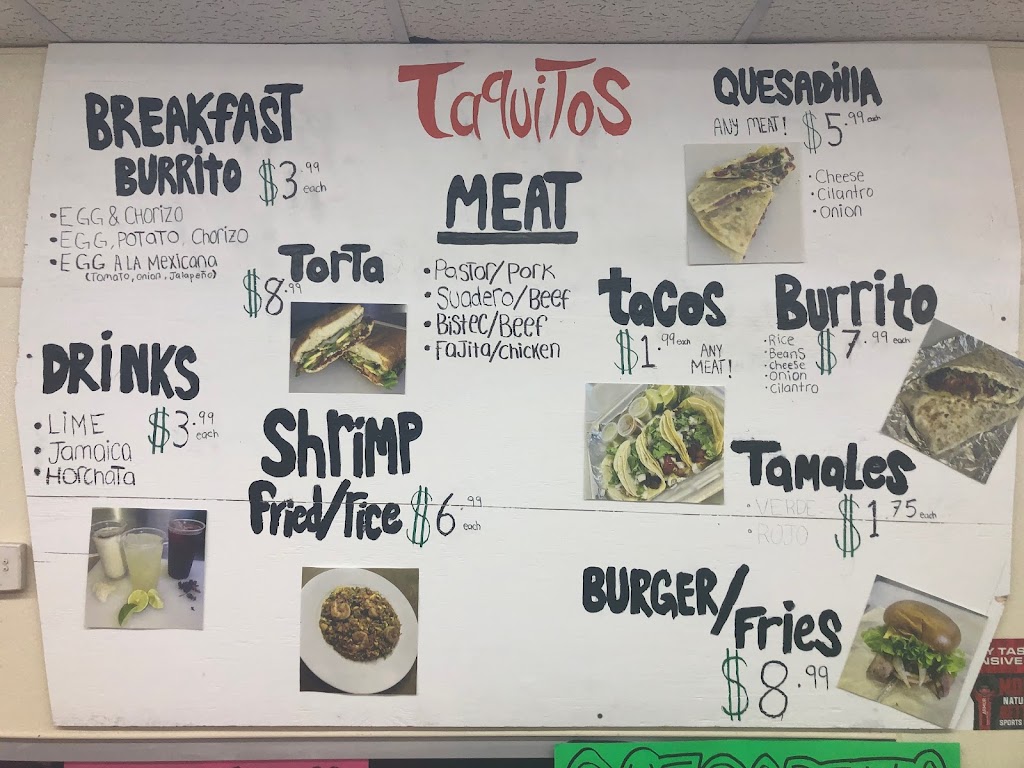 Taquitos
BREAKfAST
BURRITO $3.99 each
• EGG & CHORIZO
• EGG, POTATO, Chorizo
• EGG A LA Mexicana
(Tomato, onion, Jalapeño)
TorTa
$8.99
DRINKS
• LIME $3.99 each
• Jamaica
• HorchaTa
ShriMP
fried/rice $6.99 each
MEAT
• Pastor/Pork
• Suadero/Beef
• Bistec/Beef
• Fajita/chicken
QUESADIllA
ANY MEAT! $5.99 each
• Cheese
• Cilantro
• Onion
tacos
$1.99 each ANY
MEAT!
Burrito
$7.99 each
• Rice
• Beans
• cheese
• Onion
• Cilantro
Tamales
• VERDE $1.75 each
• ROJO
BURGER/
Fries
$8.99
NATU
SPORTS